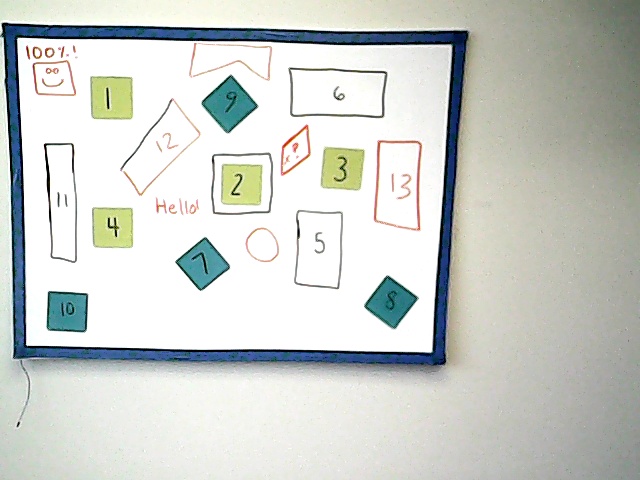 100%!
1
9
6
12
x?
3
13
11
2
Hello!
4
5
7
10
8